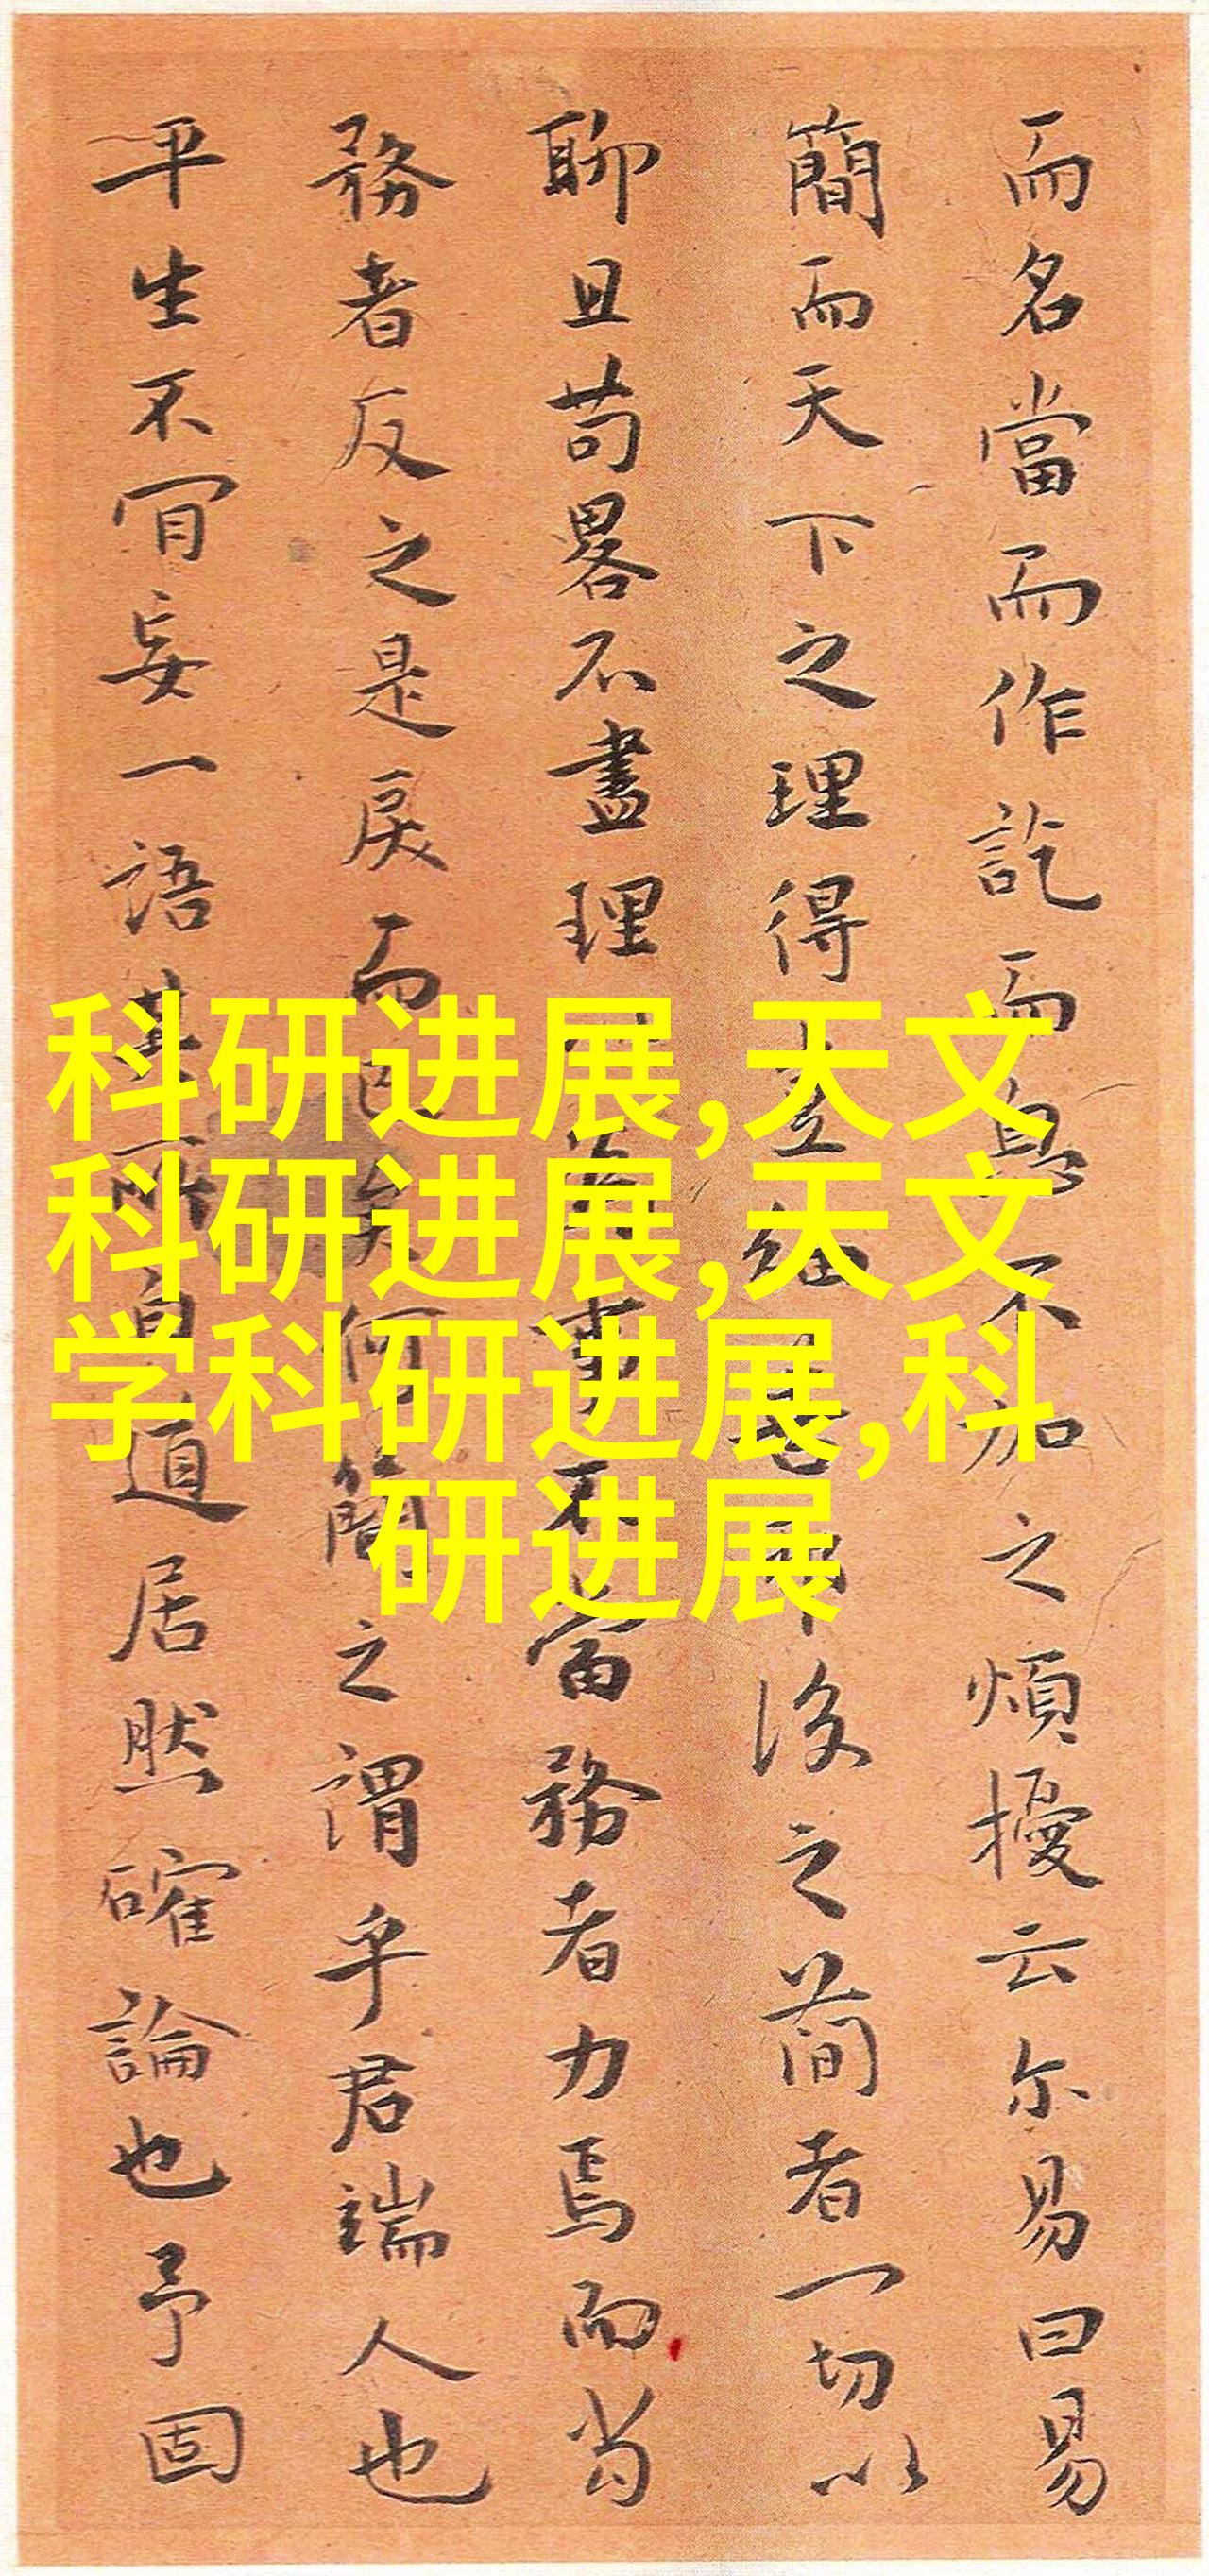 而名當而作訖而息不加之煩擾云尔易曰易
簡而天下之理得後之簡者一切以
聊且苟畧不盡理事不當務者力焉而當
務者反之是戾而何簡之謂乎君端人也
平生不肎妄一語其所自道居然確論也予固
科研进展,天文
科研进展,天文
学科研进展,科
研进展